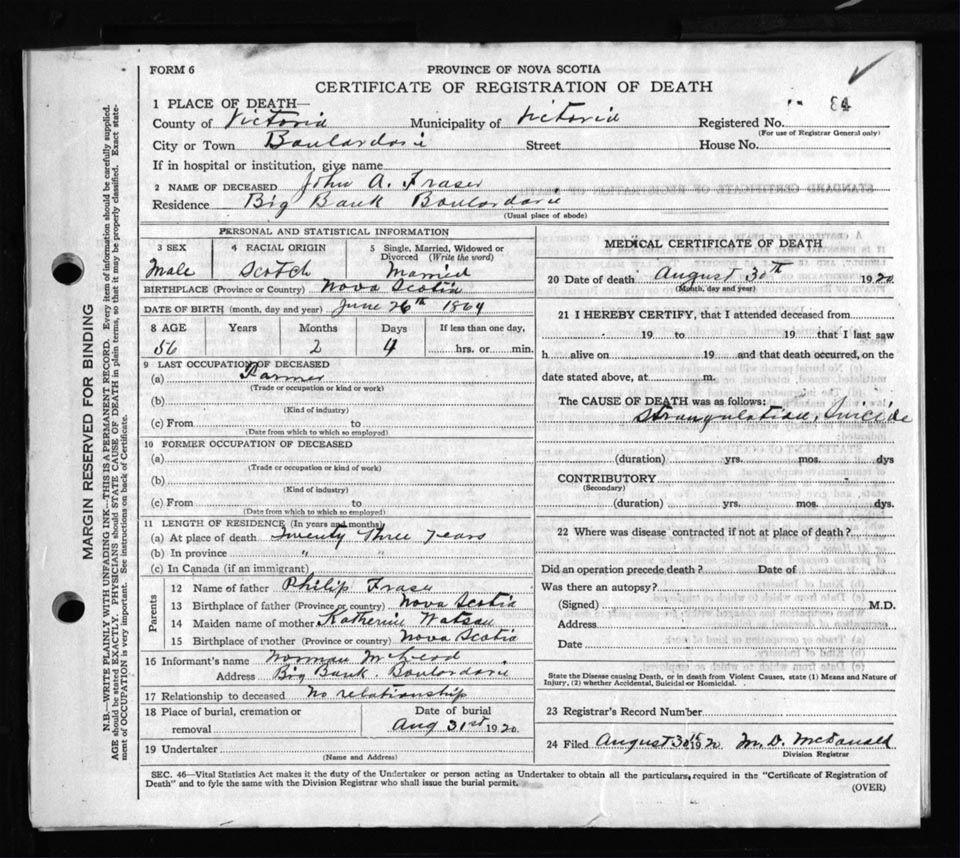 FORM 6
PROVINCE OF NOVA SCOTIA
CERTIFICATE OF REGISTRATION OF DEATH
84
1 PLACE OF DEATH—
County of Victoria Municipality of Victoria Registered No.
(For use of Registrar General only)
City or Town Boulardarie Street House No.
If in hospital or institution, give name
2 NAME OF DECEASED John A. Fraser
Residence Big Bank Boulardarie
(Usual place of abode)
PERSONAL AND STATISTICAL INFORMATION
3 SEX 4 RACIAL ORIGIN 5 Single, Married, Widowed or Divorced (Write the word)
Male Scotch Married
BIRTHPLACE (Province or Country) Nova Scotia
DATE OF BIRTH (month, day and year) June 26th 1864
8 AGE Years Months Days If less than one day,
56 2 4 hrs. or min.
9 LAST OCCUPATION OF DECEASED
(a) Farmer
(Trade or occupation or kind or work)
(b)
(Kind of industry)
(c) From to
(Date from which to which so employed)
10 FORMER OCCUPATION OF DECEASED
(a)
(Trade or occupation or kind of work)
(b)
(Kind of industry)
(c) From to
(Date from which to which so employed)
11 LENGTH OF RESIDENCE (In years and months)
(a) At place of death Twenty Three Years
(b) In province " "
(c) In Canada (if an immigrant)
Parents
12 Name of father Philip Fraser
13 Birthplace of father (Province or country) Nova Scotia
14 Maiden name of mother Katherine Watson
15 Birthplace of mother (Province or country) Nova Scotia
16 Informant's name Norman McLeod
Address Big Bank. Boulardarie
17 Relationship to deceased No relationship
18 Place of burial, cremation or removal
Date of burial
Aug 31st 1920
19 Undertaker
(Name and Address)
MEDICAL CERTIFICATE OF DEATH
20 Date of death August 30th 1920
(Month, day and year)
21 I HEREBY CERTIFY, that I attended deceased from
19 to 19 that I last saw
h alive on 19 and that death occurred, on the
date stated above, at m.
The CAUSE OF DEATH was as follows:
Strangulation, Suicide
(duration) yrs. mos. dys
CONTRIBUTORY
(Secondary)
(duration) yrs. mos. dys.
22 Where was disease contracted if not at place of death?
Did an operation precede death? Date of
Was there an autopsy?
(Signed) M.D.
Address
Date
State the Disease causing Death, or in death from Violent Causes, state (1) Means and Nature of
Injury, (2) whether Accidental, Suicidal or Homicidal.
23 Registrar's Record Number
24 Filed August 30th 1920 M. D. McDonald
Division Registrar
SEC. 46—Vital Statistics Act makes it the duty of the Undertaker or person acting as Undertaker to obtain all the particulars, required in the "Certificate of Registration of
Death" and to fyle the same with the Division Registrar who shall issue the burial permit.
(OVER)
MARGIN RESERVED FOR BINDING
N.B.—WRITE PLAINLY WITH UNFADING INK—THIS IS A PERMANENT RECORD. Every item of information should be carefully supplied.
AGE should be stated EXACTLY. PHYSICIANS should STATE CAUSE OF DEATH in plain terms, so that it may be properly classified. Exact state-
ment of OCCUPATION is very important. See instructions on back of Certificate.